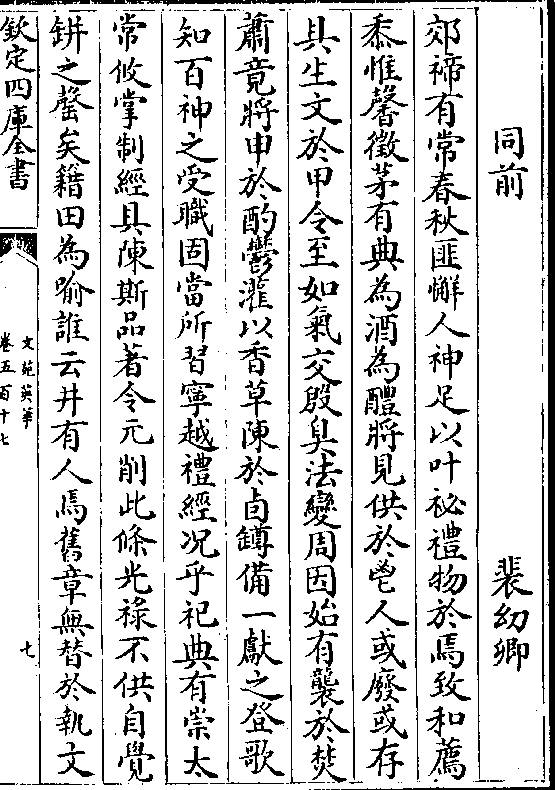 同前　裴幼卿
郊禘有常春秋匪懈人神足以叶祕禮物於焉致和薦
黍惟馨徵茅有典為酒為醴將見供於鬯人或廢或存
具生文於甲令至如氣交殷臭法變周因始有襲於焚
蕭竟將申於酌鬱灌以香草陳於卣罇備一獻之登歌
知百神之受職固當所習寧越禮經况乎祀典有崇太
常攸掌制經具陳斯品著令元削此條光祿不供自覺
缾之罄矣籍田為喻誰云井有人焉舊章無替於執文
欽定四庫全書
文苑英華
卷五百十七
七